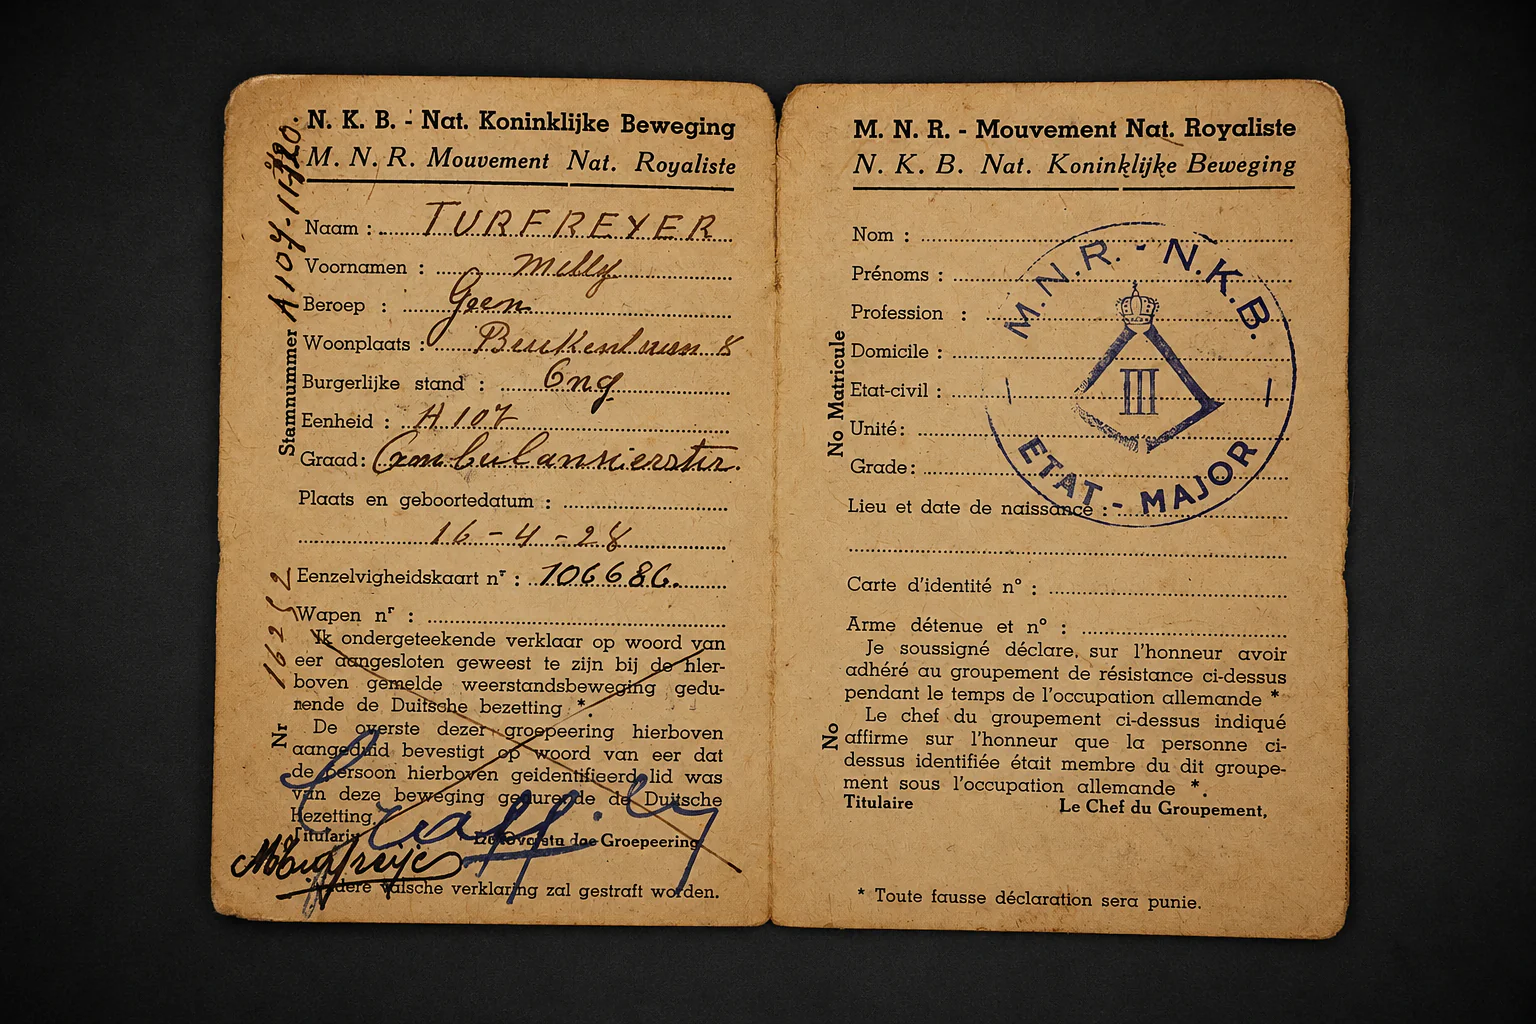 N. K. B. - Nat. Koninklijke Beweging
M. N. R. Mouvement Nat. Royaliste
Naam : TURFREYER
Voornamen : Milly
Beroep : Geen
Woonplaats : 8
Burgerlijke stand : Ong
Eenheid : A 107
Graad:
Plaats en geboortedatum :
16 - 4 - 28
Eenzelvigheidskaart nr : 106686.
Wapen nr :
Ik ondergeteekende verklaar op woord van
eer aangesloten geweest te zijn bij de hier-
boven gemelde weerstandsbeweging gedu-
rende de Duitsche bezetting *.
De overste dezer groepeering hierboven
aangeduid bevestigt op woord van eer dat
de persoon hierboven geidentifieerd lid was
van deze beweging gedurende de Duitsche
Bezetting.
Titularis
Groepeering
valsche verklaring zal gestraft worden.
Stamnummer A107-11
Nr 16252
M. N. R. - Mouvement Nat. Royaliste
N. K. B. Nat. Koninklijke Beweging
Nom :
Prénoms :
Profession :
Domicile :
Etat-civil :
Unité :
Grade :
Lieu et date de naissance :
Carte d'identité n° :
Arme détenue et n° :
Je soussigné déclare, sur l'honneur avoir
adhéré au groupement de résistance ci-dessus
pendant le temps de l'occupation allemande *
Le chef du groupement ci-dessus indiqué
affirme sur l'honneur que la personne ci-
dessus identifiée était membre du dit groupe-
ment sous l'occupation allemande *.
Titulaire Le Chef du Groupement,
* Toute fausse déclaration sera punie.
No Matricule
No
M.N.R. - N.K.B.
III
ETAT - MAJOR